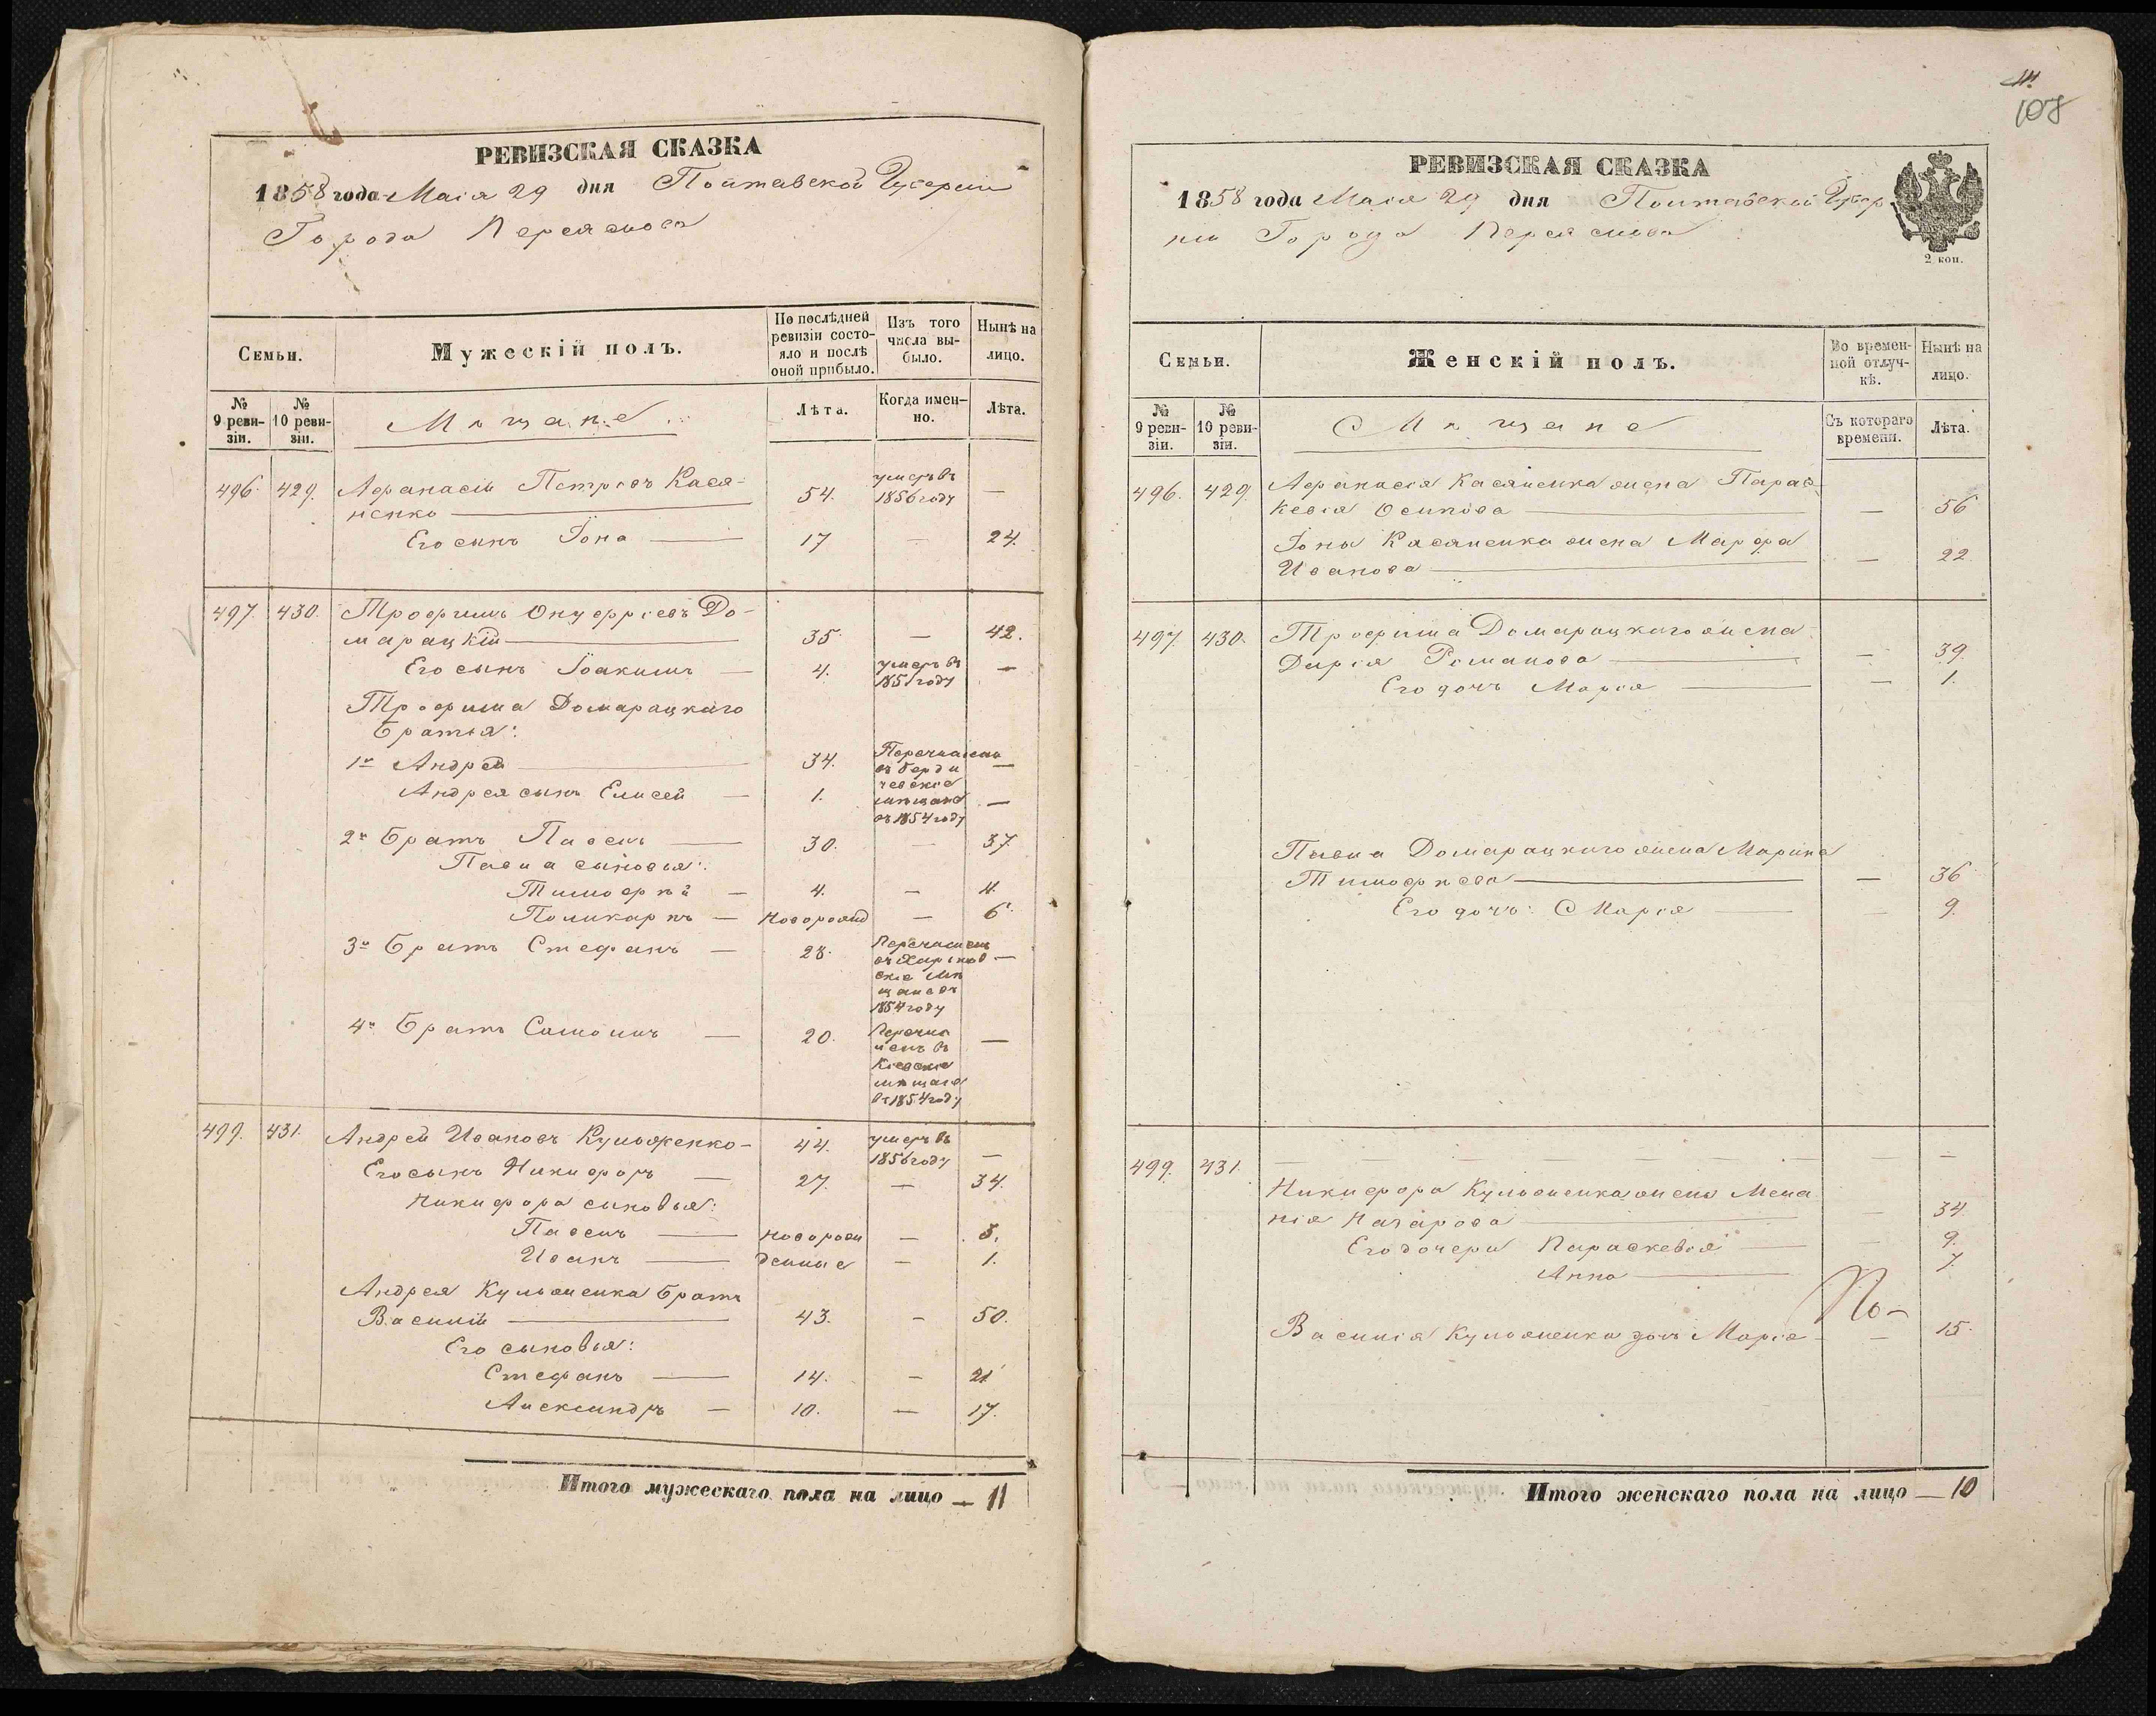 РЕВИЗСКАЯ СКАЗКА
1858 года Маія 29 дня Полтавской Губерніи
Города Переяслова
Семьи.
Мужескій полъ.
По послѣдней ревизіи состояло и послѣ оной прибыло.
Изъ того числа выбыло.
Нынѣ на лицо.
№ 9 ревизіи.
№ 10 ревизіи.
Мѣщане
Лѣта.
Когда именно.
Лѣта.
496. 429. Афанасій Петровъ Кася-
ненко — 54. умеръ въ 1856 году —
Его сынъ Іона — 17 — 24.
497. 430. Трофимъ Онуфріевъ До-
марацкій — 35. — 42.
Его сынъ Іоакимъ — 4. умеръ въ 1851 году —
Трофима Домарацкаго
братья:
1й Андрей — 34. Перечисленъ въ Бердичевскіе мѣщане въ 1854 году —
Андрея сынъ Елисей — 1. —
2й братъ Павелъ — 30. — 37.
Павла сыновья:
Тимофѣй — 4. — 11.
Поликарпъ — новорожд — 6.
3й братъ Стефанъ — 28. Перечисленъ въ Харьковскіе Мѣщане въ 1854 году —
4й братъ Самоилъ — 20. Перечисленъ въ Кіевскіе мѣщане въ 1854 году —
499. 431. Андрей Ивановъ Кульженко — 44. умеръ въ 1856 году —
Его сынъ Никифоръ — 27. — 34.
Никифора сыновья:
Павелъ — новорож — 5.
Иванъ — денные — 1.
Андрея Кульженка братъ
Василій — 43. — 50.
Его сыновья:
Стефанъ — 14. — 21
Александръ — 10. — 17.
Итого мужескаго пола на лицо — 11
108
РЕВИЗСКАЯ СКАЗКА
1858 года Маія 29 дня Полтавской Губер
ніи Города Переяслова
2 коп.
Семьи.
Женскій полъ.
Во временной отлучкѣ.
Нынѣ на лицо.
№ 9 ревизіи.
№ 10 ревизіи.
Мѣщане
Съ котораго времени.
Лѣта.
496. 429. Афанасія Касяненка жена Парас-
кевія Осипова — — 56
Іоны Касяненка жена Марфа
Иванова — — 22.
497. 430. Трофима Домарацкаго жена
Дарія Романова — — 39.
Его дочь Марія — — 1.
Павла Домарацкаго жена Марина
Тимофѣева — — 36
Его дочь: Марія — — 9.
499. 431. — — — — — — — — —
Никифора Кульженка жена Мела
нія Назарова — — 34.
Его дочери Параскевія — — 9.
Анна — 7.
Василія Кульженка дочь Марія — — 15.
Итого женскаго пола на лицо — 10